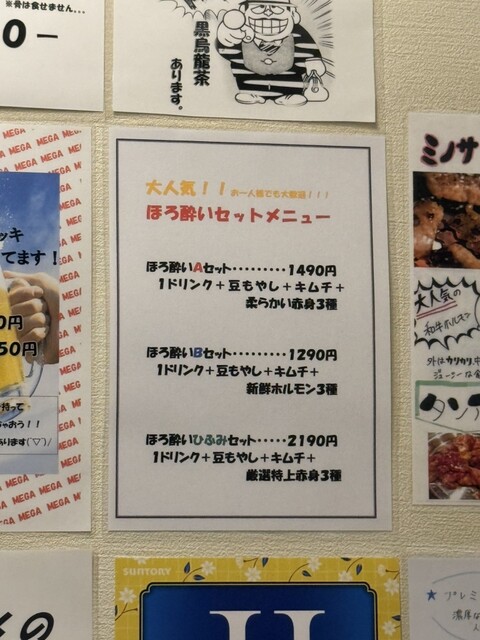 ※骨は食せません…
0ー
黒烏龍茶
あります。
MEGA MEGA MEGA MEGA
ッキ
てます！
0円
50円
持って
ゃおう！！
あります(´▽`)/
大人気！！お一人様でも大歓迎！！！
ほろ酔いセットメニュー
ほろ酔いAセット‥‥‥‥‥1490円
1ドリンク＋豆もやし＋キムチ＋
柔らかい赤身3種
ほろ酔いBセット‥‥‥‥‥1290円
1ドリンク＋豆もやし＋キムチ＋
新鮮ホルモン3種
ほろ酔いひふみセット‥‥‥2190円
1ドリンク＋豆もやし＋キムチ＋
厳選特上赤身3種
ミノサ
大人気の
和牛ホルモン
外はカリカリ、中
ジューシーな
タン
SUNTORY
★プレミ
濃厚な
の